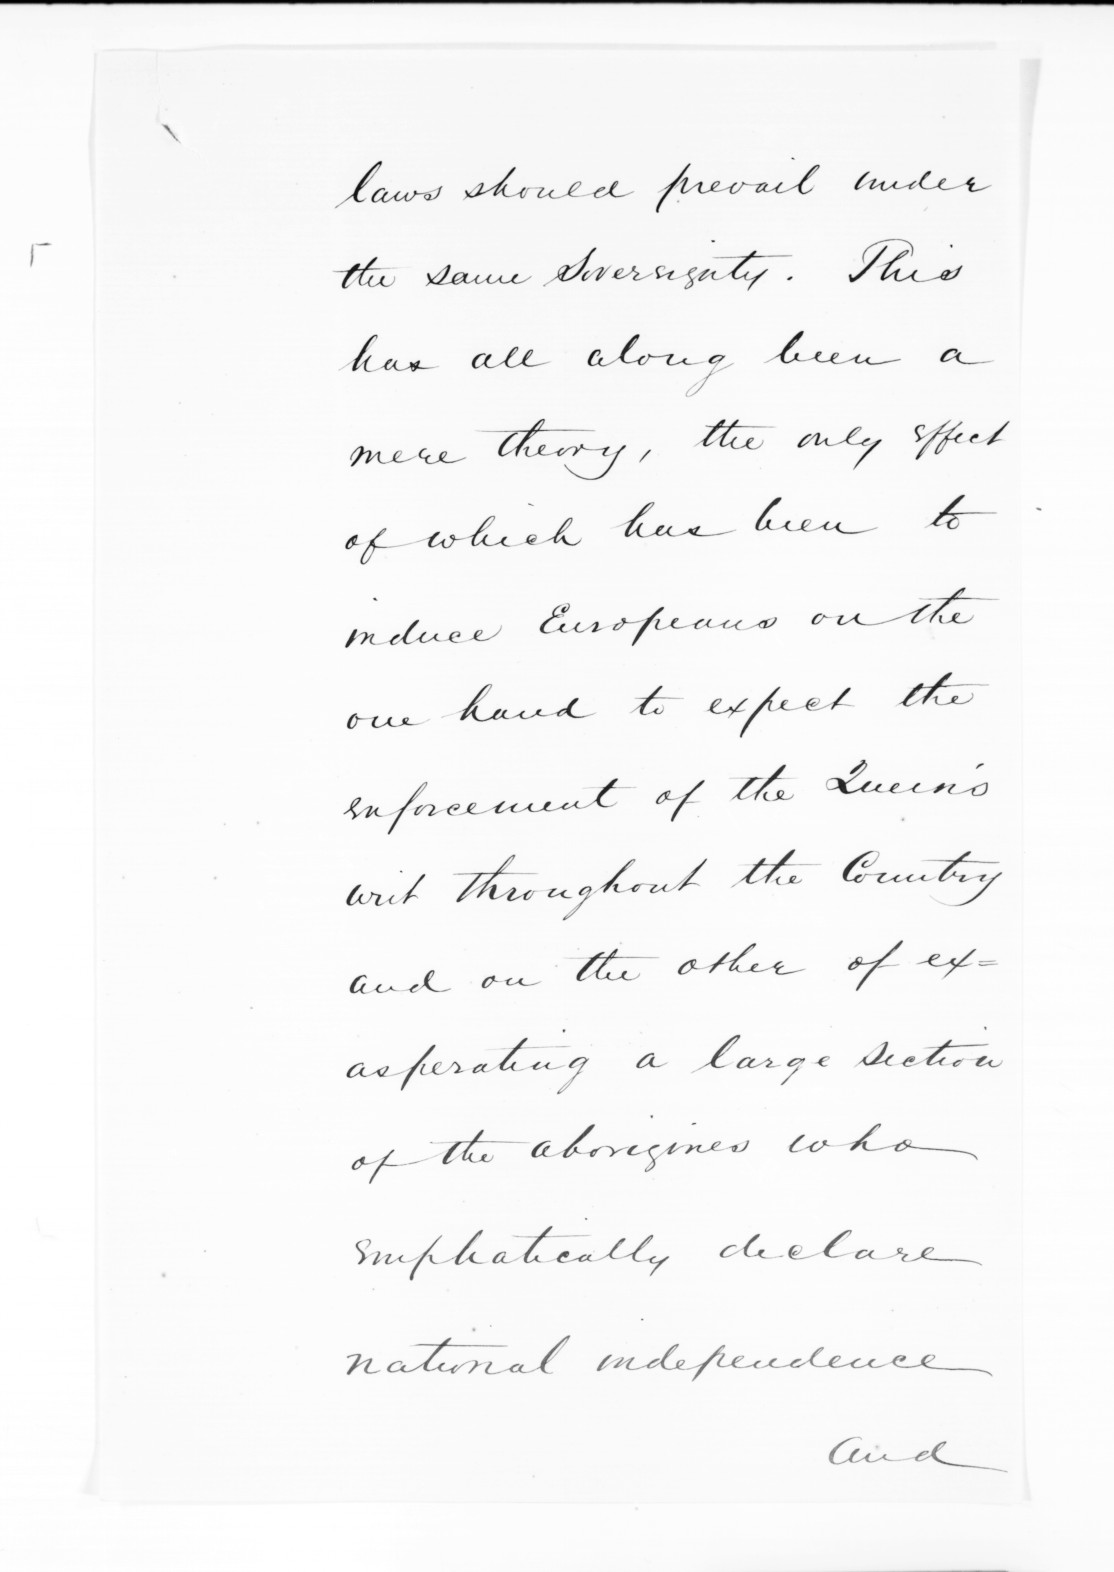 laws should prevail under
the same Sovereignty. This
has all along been a
mere theory, the only effect
of which has been to
induce Europeans on the
one hand to expect the
enforcement of the Queen's
writ throughout the Country
and on the other of ex=
asperating a large section
of the aborigines who
emphatically declare
national independence
and